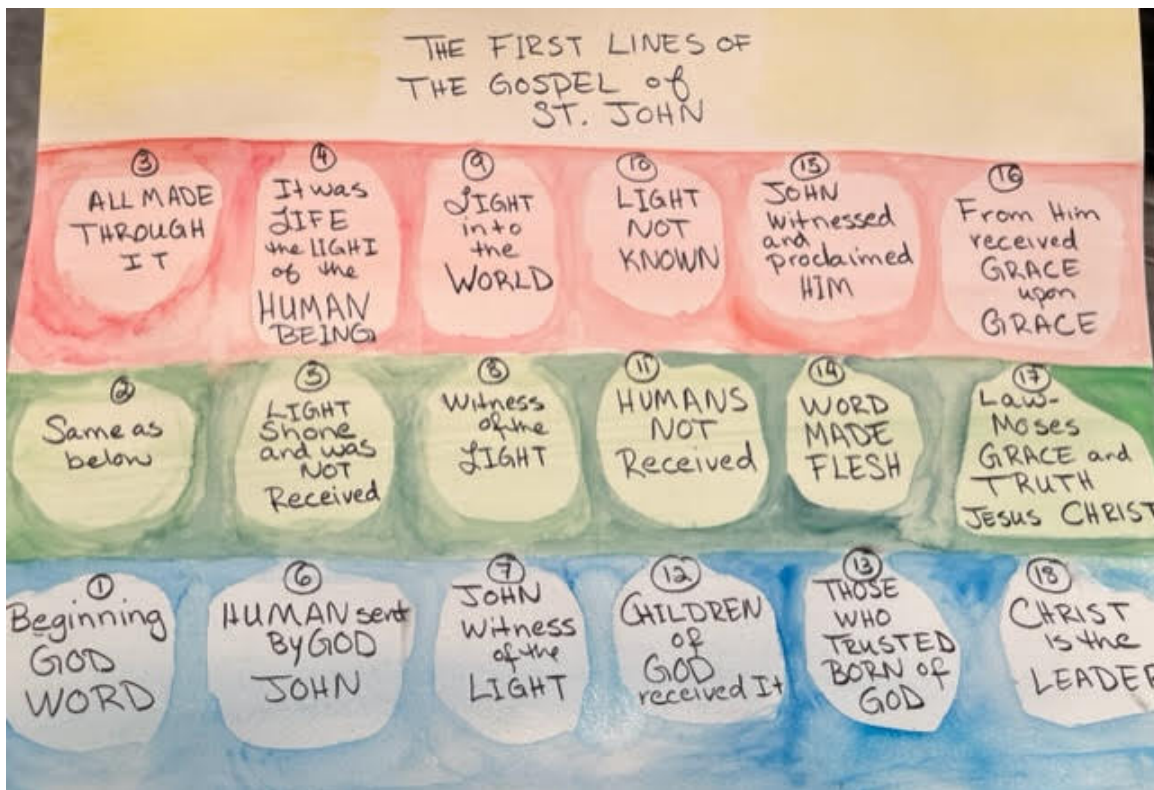 THE FIRST LINES OF
THE GOSPEL of
ST. JOHN
3
ALL MADE
THROUGH
IT
4
It was
LIFE
the LIGHT
of the
HUMAN
BEING
9
LIGHT
into
the
WORLD
10
LIGHT
NOT
KNOWN
15
JOHN
witnessed
and
proclaimed
HIM
16
From Him
received
GRACE
upon
GRACE
2
Same as
below
5
LIGHT
Shone
and was
NOT
Received
8
Witness
of the
LIGHT
11
HUMANS
NOT
Received
14
WORD
MADE
FLESH
17
Law-
Moses
GRACE and
TRUTH
JESUS CHRIST
1
Beginning
GOD
WORD
6
HUMAN sent
By GOD
JOHN
7
JOHN
Witness
of the
LIGHT
12
CHILDREN
of
GOD
received It
13
THOSE
WHO
TRUSTED
BORN of
GOD
18
CHRIST
is the
LEADER